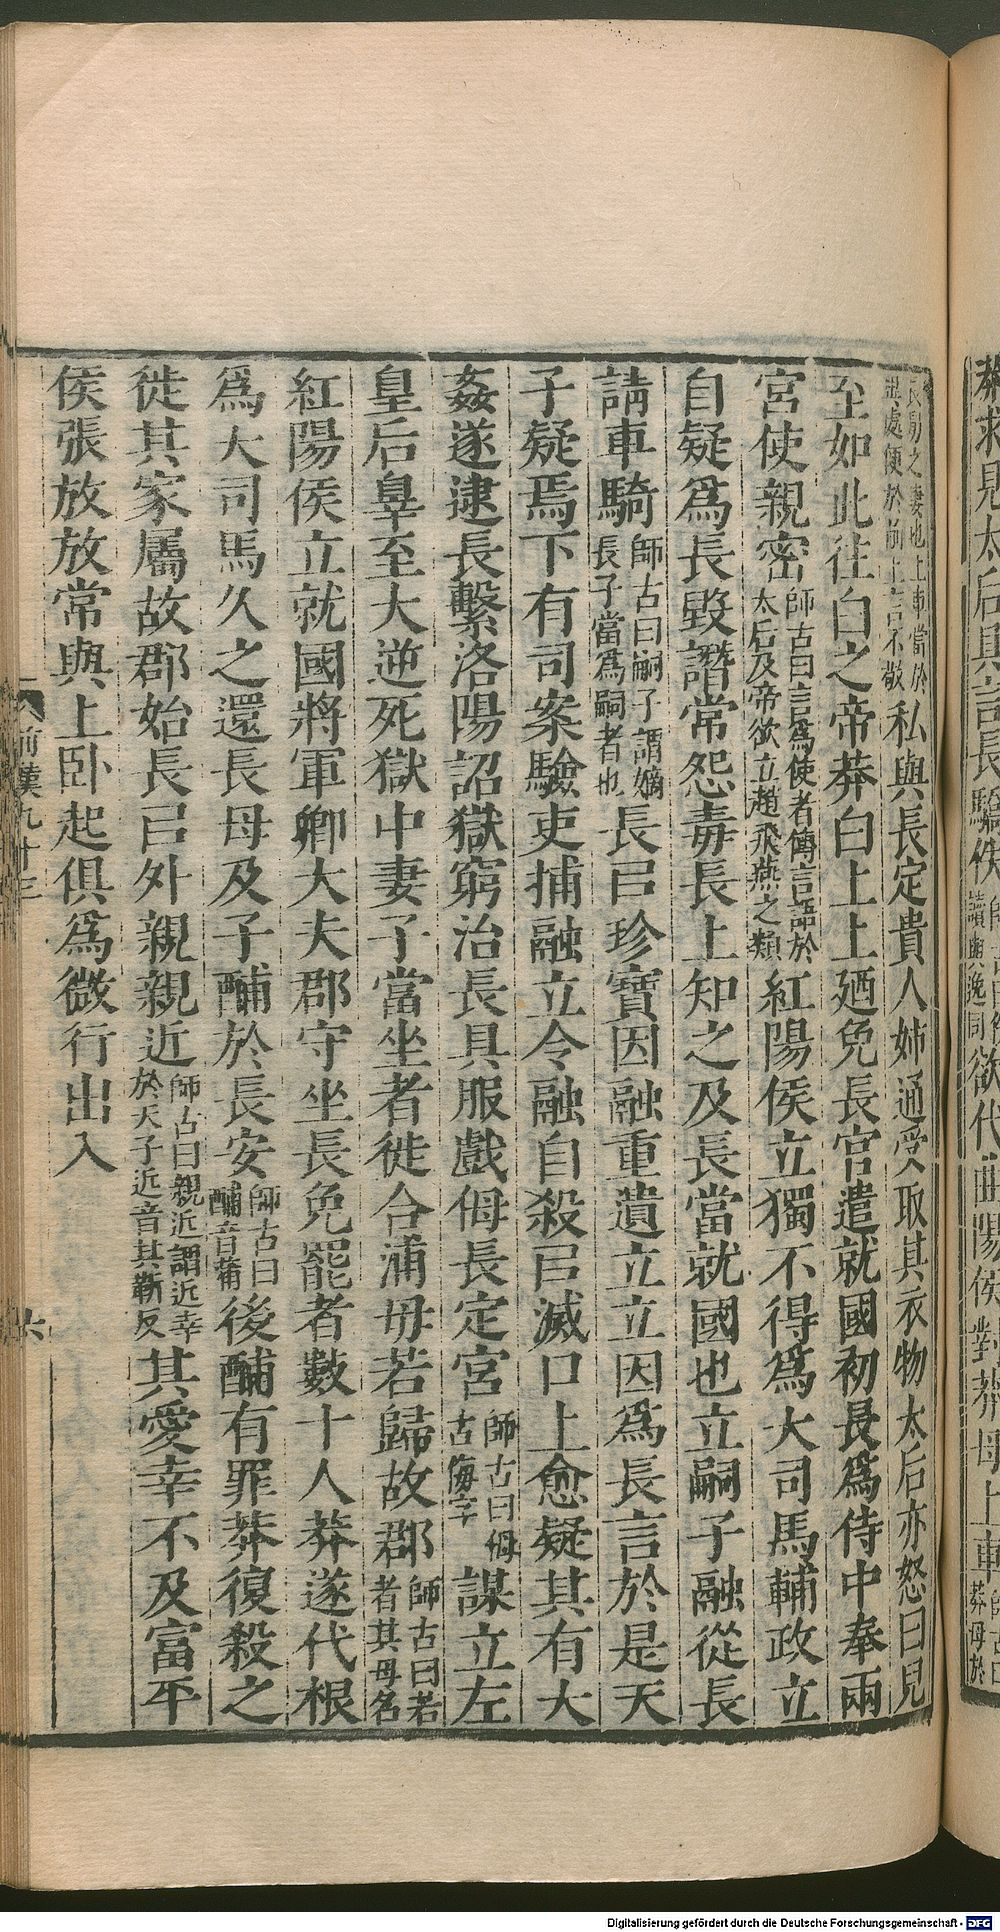 莽求見太后具言長驕佚師古曰佚讀與逸同欲代曲陽侯對莽母上車師古曰莽母於
長則之妻也上車當於異處便於前上言不敬私與長定貴人姊通受取其衣物太后亦怒曰兒
至如此往白之帝莽白上上廼免長官遣就國初長爲侍中奉兩
宮使親密師古曰言爲使者傳言語於太后及帝欲立趙飛燕之類紅陽侯立獨不得爲大司馬輔政立
自疑爲長毀譖常怨毒長上知之及長當就國也立嗣子融從長
請車騎師古曰嗣子謂嫡長子當爲嗣者也長㠯珍寶因融重遺立立因爲長言於是天
子疑焉下有司案驗吏捕融立令融自殺㠯滅口上愈疑其有大
姦遂逮長繫洛陽詔獄窮治長具服戲侮長定宮師古曰侮古侮字謀立左
皇后辠至大逆死獄中妻子當坐者徙合浦母若歸故郡師古曰若者其母名
紅陽侯立就國將軍卿大夫郡守坐長免罷者數十人莽遂代根
爲大司馬久之還長母及子酺於長安師古曰酺音蒲後酺有罪莽復殺之
徙其家屬故郡始長㠯外親親近師古曰親近謂近幸於天子近音其靳反其愛幸不及富平
侯張放放常與上卧起俱爲微行出入
前漢九十三
六
Digitalisierung gefördert durch die Deutsche Forschungsgemeinschaft - DFG